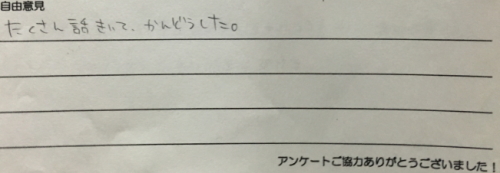 自由意見
たくさん話きいて、かんどうした。
アンケートご協力ありがとうございました!